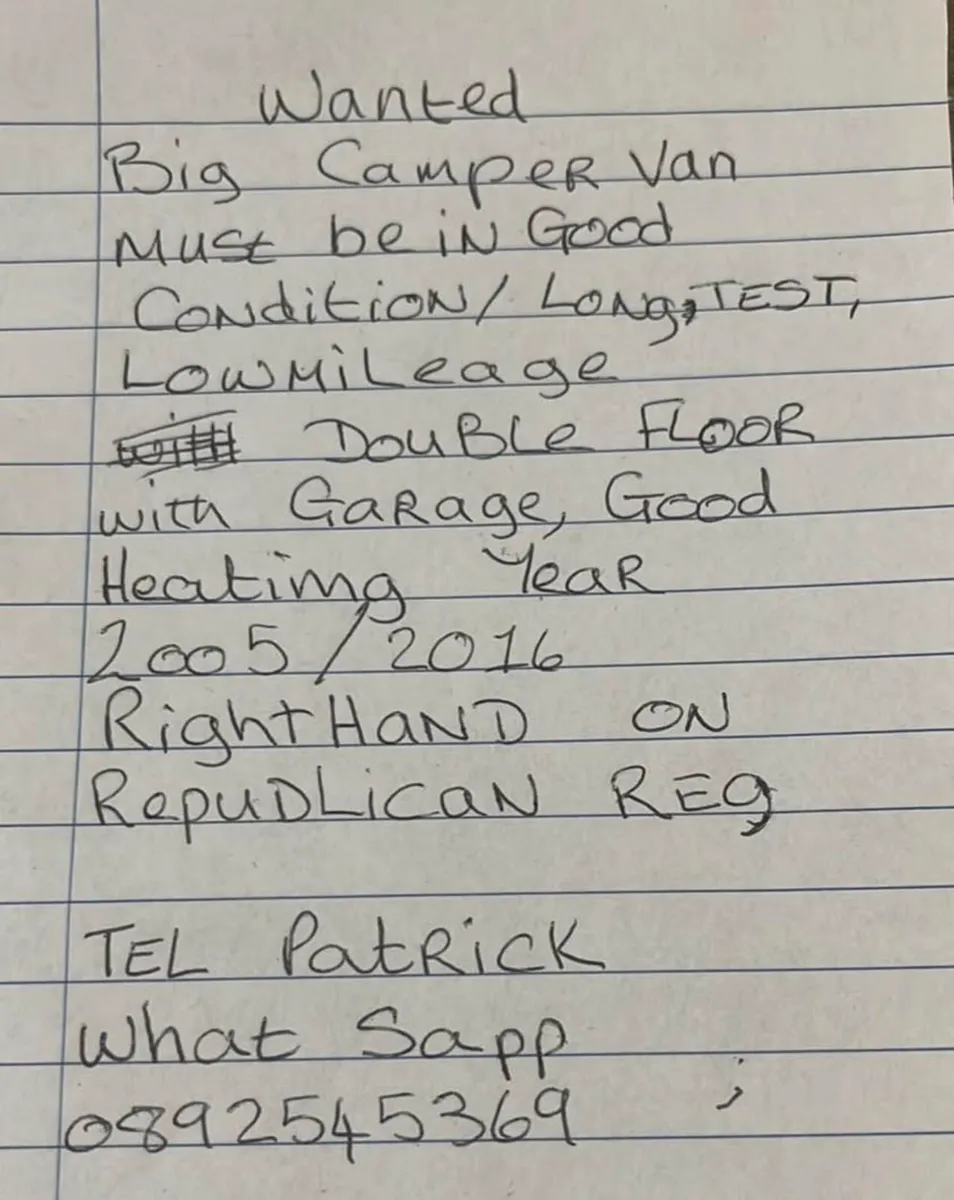 Wanted
Big Camper Van
Must be in Good
Condition/ Long, TEST,
Low Mileage
Double Floor
with Garage, Good
Heatimg Year
2005/2016
Right Hand on
Repudlican Reg
TEL Patrick
What Sapp
0892545369 ;